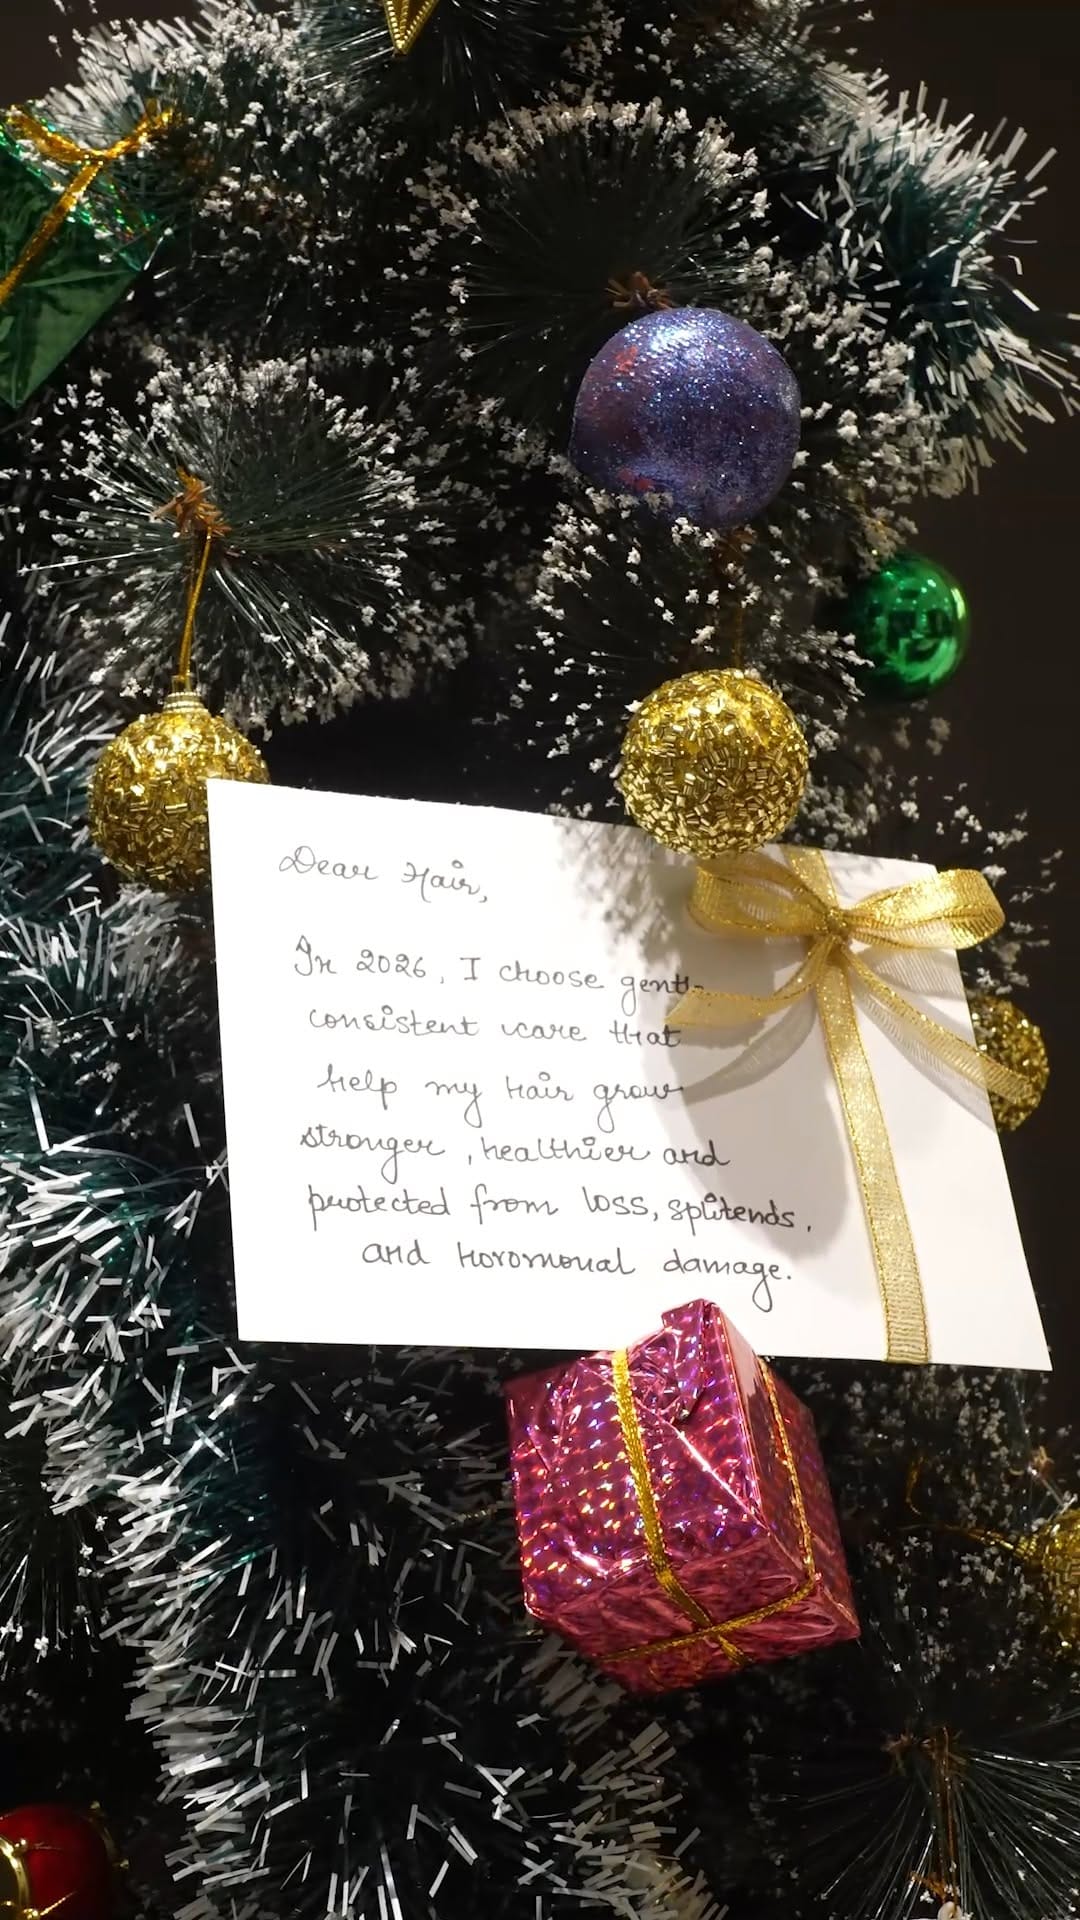 Dear Hair,
In 2026, I choose
consistent care that
help my hair grow
stronger, healthier and
protected from loss, splitends,
and horomonal damage.